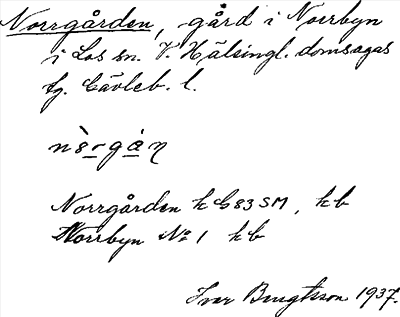 Norrgården, gård i Norrbyn
i Los sn. V. Hälsingl. domsagas
tg. Gävleb. l.
Norrgården k G83 SM, kb
Norrbyn No 1 kb
Ivar Bengtsson 1937.